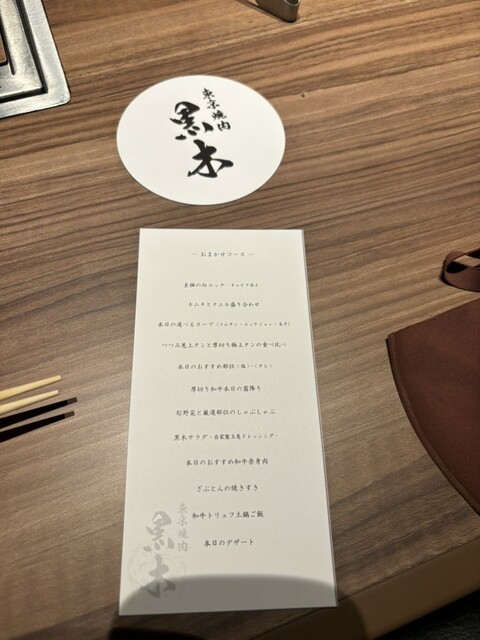 東京焼肉
黒木
― おまかせコース ―
至極の和ユッケ ‐キャビア添え‐
キムチとナムル盛り合わせ
本日の選べるスープ(コムタン・ユッケジャン・玉子)
つつみ葱上タンと厚切り極上タンの食べ比べ
本日のおすすめ部位(塩)・(タレ)
厚切り和牛本日の霜降り
旬野菜と厳選部位のしゃぶしゃぶ
黒木サラダ ‐自家製玉葱ドレッシング‐
本日のおすすめ和牛赤身肉
ざぶとんの焼きすき
和牛トリュフ土鍋ご飯
本日のデザート
東京焼肉
黒木